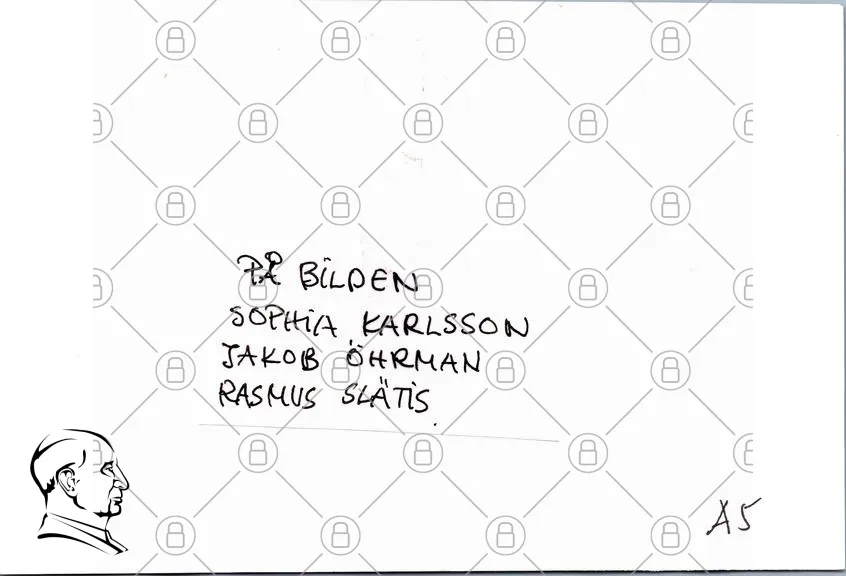 PÅ BILDEN
SOPHIA KARLSSON
JAKOB ÖHRMAN
RASMUS SLÄTIS.
A5